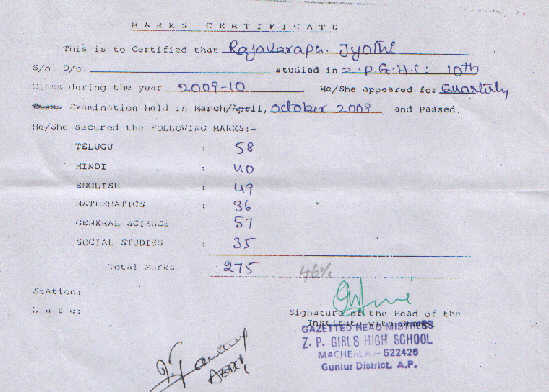 MARKS CERTIFICATE
This is to Certified that Rajavarapu Jyothi
S/o D/o. studied in Z.P.G.H.S: 10th
Class during the year 2009-10 He/She appeared for Quarterly
Examination held in March/April, October 2009 and Passed.
He/She secured the FOLLOWING MARKS:-
TELUGU : 58
HINDI : 40
ENGLISH : 49
MATHEMATICS : 36
GENERAL SCIENCE : 57
SOCIAL STUDIES : 35
Total Marks 275 46%
Station:
Date:
Signature of the Head of the
Institution
GAZETTED HEAD MISTRESS
Z. P. GIRLS HIGH SCHOOL
MACHERLA - 522426
Guntur District, A.P.